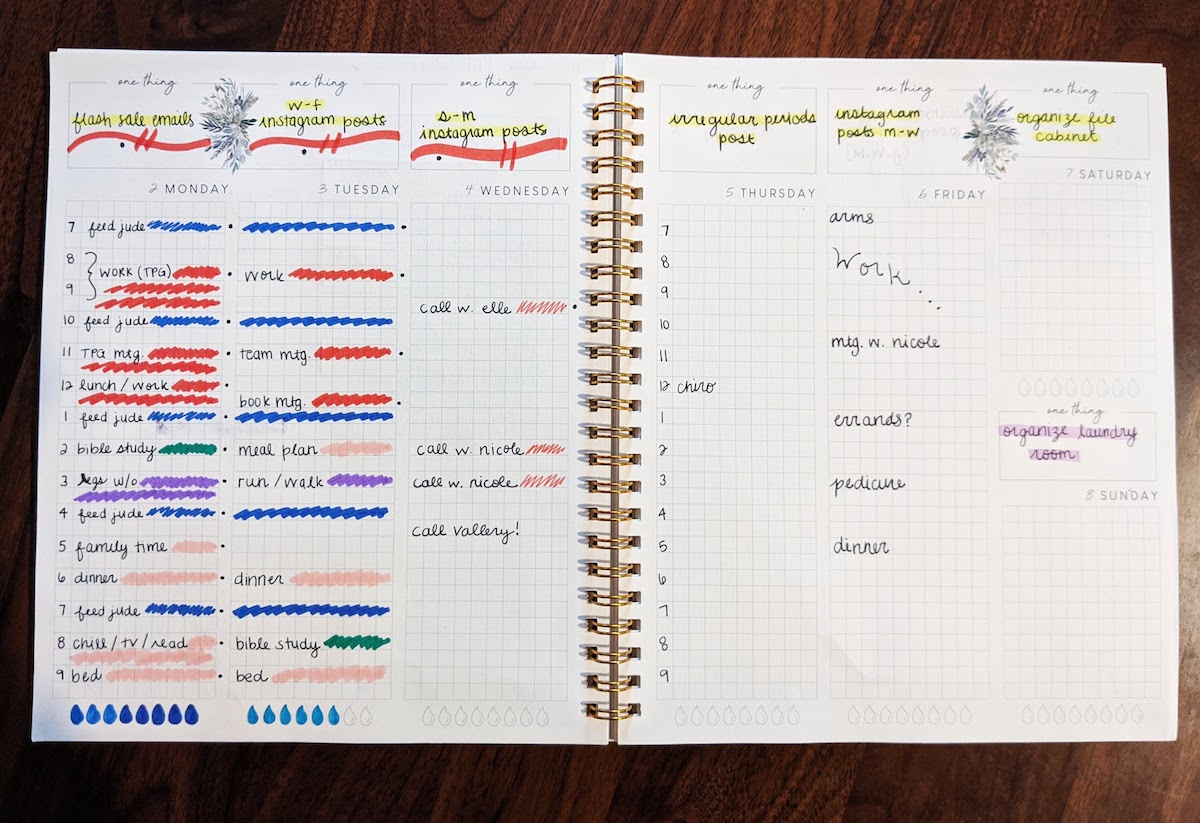 one thing
flash sale emails
2 MONDAY
7 feed jude
8
WORK (TPG)
9
10 feed jude
11 TPG mtg.
12 lunch / work
1 feed jude
2 bible study
3 legs w/o
4 feed jude
5 family time
6 dinner
7 feed jude
8 chill / TV / read
9 bed
one thing
w-f
instagram posts
3 TUESDAY
work
team mtg.
book mtg.
meal plan
run / walk
dinner
bible study
bed
one thing
s-m
instagram posts
4 WEDNESDAY
call w. elle
call w. nicole
call w. nicole
call vallery!
one thing
irregular periods
post
5 THURSDAY
7
8
9
10
11
12 chiro
1
2
3
4
5
6
7
8
9
one thing
instagram
posts m-w
6 FRIDAY
arms
Work...
mtg. w. nicole
errands?
pedicure
dinner
one thing
organize file
cabinet
7 SATURDAY
one thing
organize laundry
room
8 SUNDAY